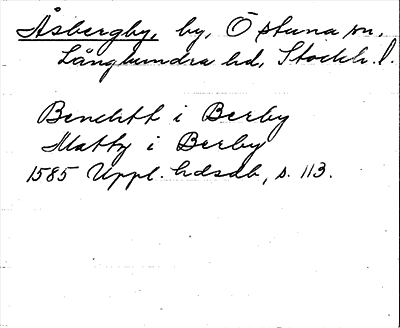 Åsbergby, by, Östuna sn.
Långhundra hd, Stockh. l.
Benchtt i Berby
Mattz i Berby
1585 Uppl. hdsdb, s. 113.